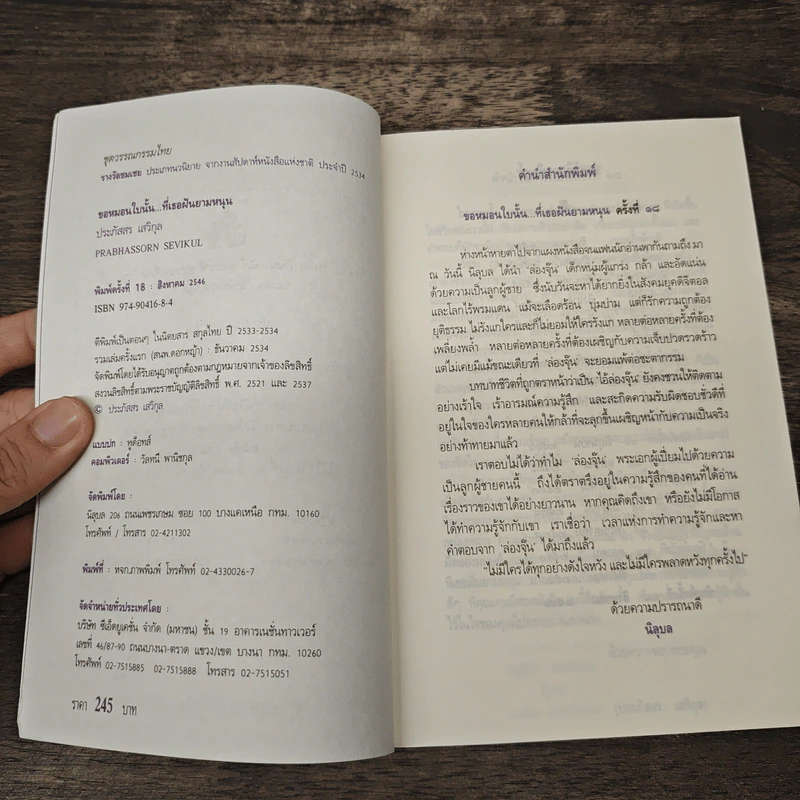 ชุดวรรณกรรมไทย
รางวัลชมเชย ประเภทนวนิยาย จากงานสัปดาห์หนังสือแห่งชาติ ประจำปี 2534
ขอหมอนใบนั้น...ที่เธอฝันยามหนุน
ประภัสสร เสวิกุล
PRABHASSORN SEVIKUL
พิมพ์ครั้งที่ 18 : สิงหาคม 2546
ISBN 974-90416-8-4
ตีพิมพ์เป็นตอนๆ ในนิตยสาร สกุลไทย ปี 2533-2534
รวมเล่มครั้งแรก (สนพ.ดอกหญ้า) : ธันวาคม 2534
จัดพิมพ์โดยได้รับอนุญาตถูกต้องตามกฎหมายจากเจ้าของลิขสิทธิ์
สงวนลิขสิทธิ์ตามพระราชบัญญัติลิขสิทธิ์ พ.ศ. 2521 และ 2537
© ประภัสสร เสวิกุล
แบบปก : ทูด็อทส์
คอมพิวเตอร์ : วัลทนี พานิชกุล
จัดพิมพ์โดย :
นิลุบล 206 ถนนเพชรเกษม ซอย 100 บางแคเหนือ กทม. 10160
โทรศัพท์ / โทรสาร 02-4211302
พิมพ์ที่ : หจก.ภาพพิมพ์ โทรศัพท์ 02-4330026-7
จัดจำหน่ายทั่วประเทศโดย :
บริษัท ซีเอ็ดยูเคชั่น จำกัด (มหาชน) ชั้น 19 อาคารเนชั่นทาวเวอร์
เลขที่ 46/87-90 ถนนบางนา-ตราด แขวง/เขต บางนา กทม. 10260
โทรศัพท์ 02-7515885 02-7515888 โทรสาร 02-7515051
ราคา 245 บาท
คำนำสำนักพิมพ์
ขอหมอนใบนั้น...ที่เธอฝันยามหนุน ครั้งที่ ๑๘
ห่างหน้าหายตาไปจากแผงหนังสือจนแฟนนักอ่านพากันถามถึง มา
ณ วันนี้ นิลุบล ได้นำ ‘ล่องจุ๊น’ เด็กหนุ่มผู้แกร่ง กล้า และอัดแน่น
ด้วยความเป็นลูกผู้ชาย ซึ่งนับวันจะหาได้ยากยิ่งในสังคมยุคดิจิตอล
และโลกไร้พรมแดน แม้จะเลือดร้อน บุ่มบ่าม แต่ก็รักความถูกต้อง
ยุติธรรม ไม่รังแกใครและก็ไม่ยอมให้ใครรังแก หลายต่อหลายครั้งที่ต้อง
เพลี่ยงพล้ำ หลายต่อหลายครั้งที่ต้องเผชิญกับความเจ็บปวดรวดร้าว
แต่ไม่เคยมีแม้ขณะเดียวที่ ‘ล่องจุ๊น’ จะยอมแพ้ต่อชะตากรรม
บทบาทชีวิตที่ถูกตราหน้าว่าเป็น ‘ไอ้ล่องจุ๊น’ ยังคงชวนให้ติดตาม
อย่างเร้าใจ เร้าอารมณ์ความรู้สึก และสะกิดความรับผิดชอบชั่วดีที่
อยู่ในใจของใครหลายคนให้กล้าที่จะลุกขึ้นเผชิญหน้ากับความเป็นจริง
อย่างท้าทายมาแล้ว
เราตอบไม่ได้ว่าทำไม ‘ล่องจุ๊น’ พระเอกผู้เปี่ยมไปด้วยความ
เป็นลูกผู้ชายคนนี้ ถึงได้ตราตรึงอยู่ในความรู้สึกของคนที่ได้อ่าน
เรื่องราวของเขาได้อย่างยาวนาน หากคุณคิดถึงเขา หรือยังไม่มีโอกาส
ได้ทำความรู้จักกับเขา เราเชื่อว่า เวลาแห่งการทำความรู้จักและหา
คำตอบจาก ‘ล่องจุ๊น’ ได้มาถึงแล้ว
“ไม่มีใครได้ทุกอย่างดังใจหวัง และไม่มีใครพลาดหวังทุกครั้งไป”
ด้วยความปรารถนาดี
นิลุบล